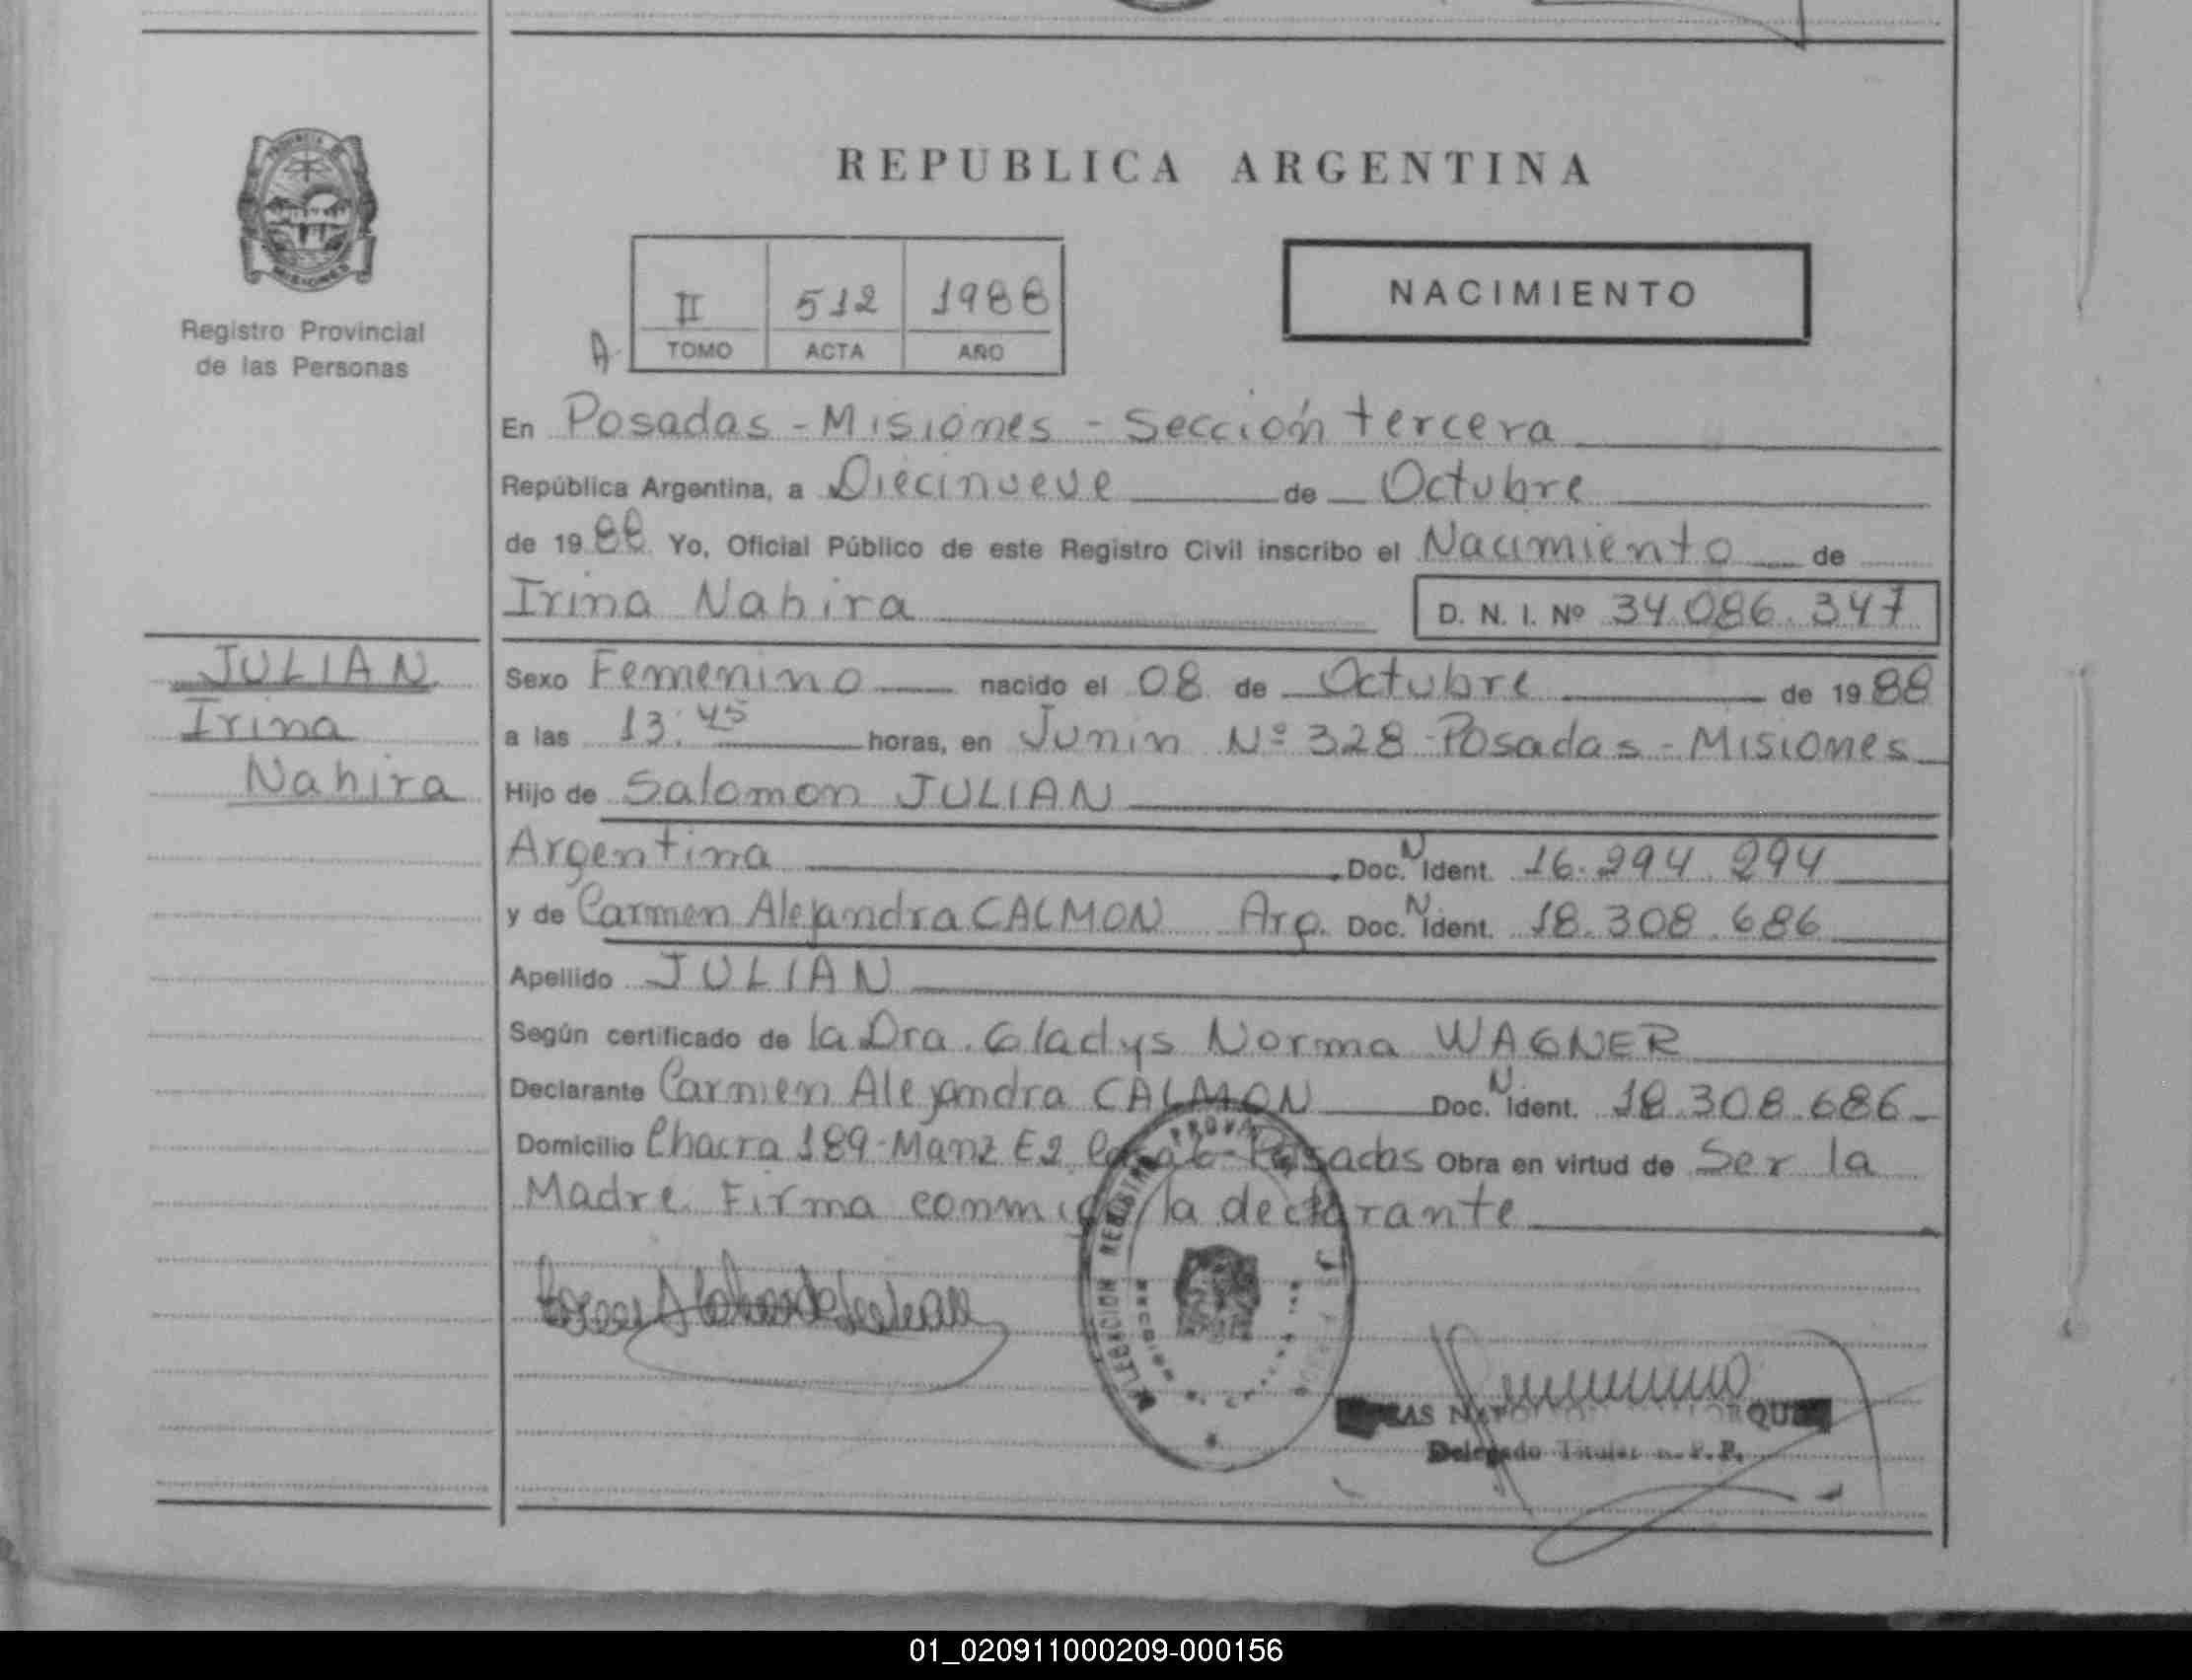 REPUBLICA ARGENTINA
PROVINCIA DE
MISIONES
Registro Provincial
de las Personas
II 512 1988
A TOMO ACTA AÑO
NACIMIENTO
En Posadas - Misiones - Sección tercera
República Argentina, a Diecinueve de Octubre
de 1988 Yo, Oficial Público de este Registro Civil inscribo el Nacimiento de
Irina Nahira D. N. I. Nº 34.086.347
JULIAN
Irina
Nahira
Sexo Femenino nacido el 08 de Octubre de 1988
a las 13:45 horas, en Junin Nº 328 - Posadas - Misiones
Hijo de Salomon JULIAN
Argentina Doc. N Ident. 16.294.294
y de Carmen Alejandra CALMON Arg. Doc. N Ident. 18.308.686
Apellido JULIAN
Según certificado de la Dra. Gladys Norma WAGNER
Declarante Carmen Alejandra CALMON Doc. N Ident. 18.308.686
Domicilio Chacra 189 - Manz E2 Casa 6 - Posadas Obra en virtud de Ser la
Madre. Firma conmigo la declarante
DELEGACION REGISTRO PROV
Delegado Titular R. P. P.
01_020911000209-000156